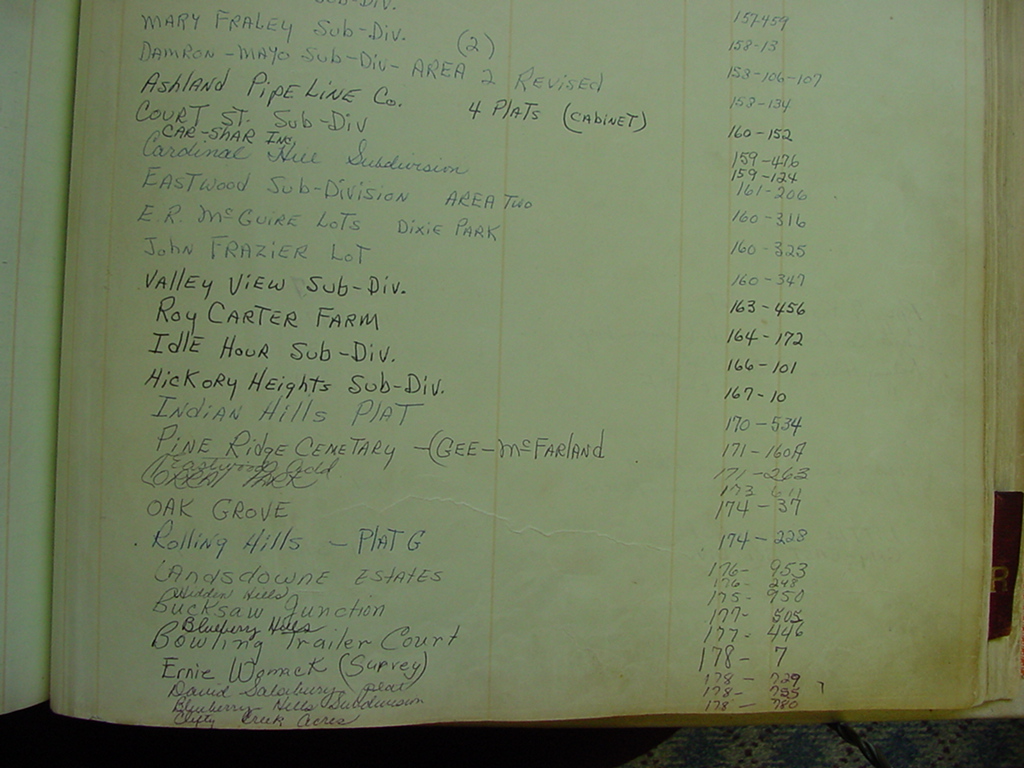 Sub-Div.
MARY FRALEY Sub-Div. 157-459
DAMRON-MAYO Sub-Div- (2) 158-13
AREA 2 REVISED 153-106-107
ASHLAND PIPE LINE CO. 158-134
COURT ST. Sub-Div 4 PLATS (CABINET) 160-152
CAR-SHAR INC. 159-476
Cardinal Hill Subdivision 159-124
EASTWOOD Sub-Division AREA TWO 161-206
E.R. McGUIRE LOTS DIXIE PARK 160-316
JOHN FRAZIER LOT 160-325
VALLEY VIEW SUB-DIV. 160-347
ROY CARTER FARM 163-456
IDLE HOUR SUB-DIV. 164-172
HICKORY HEIGHTS SUB-DIV. 166-101
167-10
INDIAN HILLS PLAT 170-534
PINE RIDGE CEMETARY -(GEE-McFARLAND 171-160A
171-263
173-
OAK GROVE 174-37
Rolling Hills - PLAT G 174-228
LANDSDOWNE ESTATES 176-953
176-248
Bucksaw Junction 175-950
Blueberry Hills 177-
Bowling Trailer Court 177-446
Ernie Womack (Survey) 178-7
David Salsbury 178-729
Blueberry Hills Subdivision 178-755
Creek Acres 178-780
R